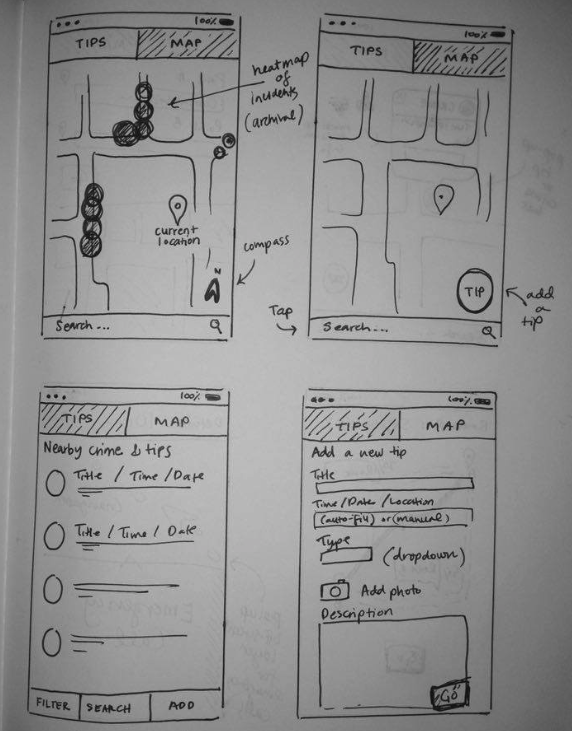 100%
TIPS MAP
heatmap
of
incidents
(archival)
current
location
compass
N
Search...
100%
TIPS MAP
TIP
add
a
tip
Tap
Search...
100%
TIPS MAP
Nearby crime & tips
Title / Time / Date
Title / Time / Date
FILTER SEARCH ADD
100%
TIPS MAP
Add a new tip
Title
Time/Date/Location
(auto-fill) or (manual)
Type
(dropdown)
Add photo
Description
GO